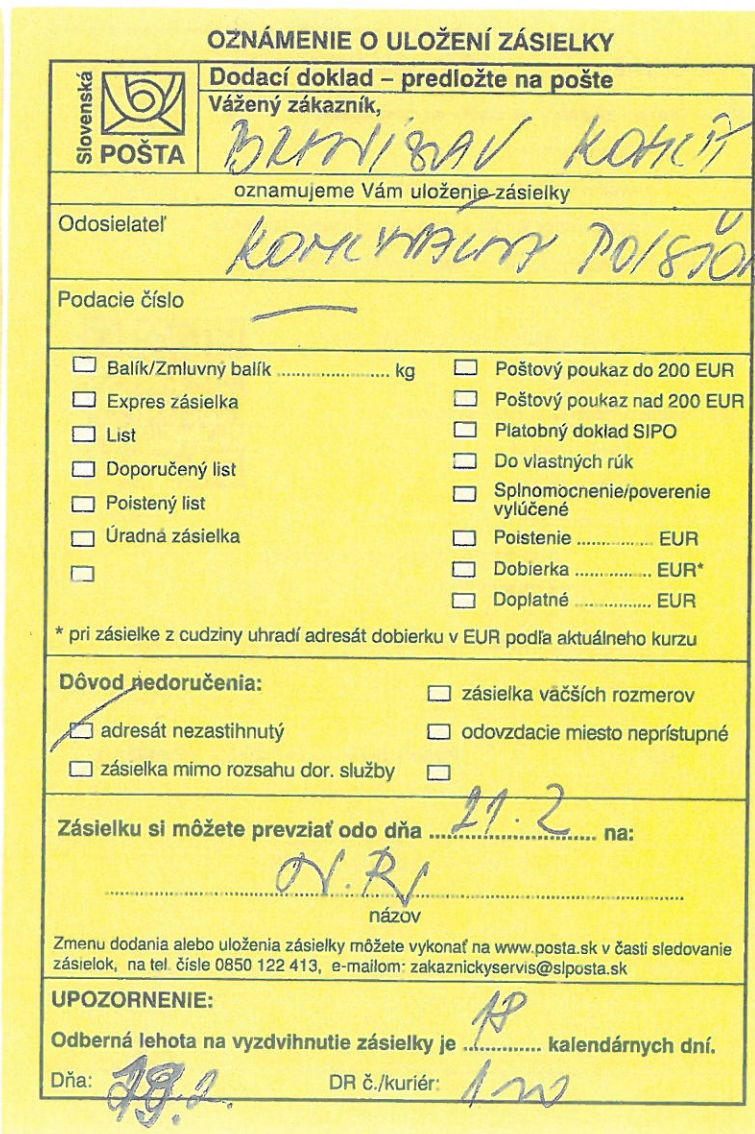 OZNÁMENIE O ULOŽENÍ ZÁSIELKY
Slovenská
POŠTA
Dodací doklad – predložte na pošte
Vážený zákazník,
BRANISLAV
oznamujeme Vám uloženie zásielky
Odosielateľ
Podacie číslo —
Balík/Zmluvný balík ...................... kg
Expres zásielka
List
Doporučený list
Poistený list
Úradná zásielka
Poštový poukaz do 200 EUR
Poštový poukaz nad 200 EUR
Platobný doklad SIPO
Do vlastných rúk
Splnomocnenie/poverenie
vylúčené
Poistenie ............... EUR
Dobierka ............... EUR*
Doplatné ............... EUR
* pri zásielke z cudziny uhradí adresát dobierku v EUR podľa aktuálneho kurzu
Dôvod nedoručenia:
adresát nezastihnutý
zásielka mimo rozsahu dor. služby
zásielka väčších rozmerov
odovzdacie miesto neprístupné
Zásielku si môžete prevziať odo dňa 21.2 na:
názov
Zmenu dodania alebo uloženia zásielky môžete vykonať na www.posta.sk v časti sledovanie
zásielok, na tel. čísle 0850 122 413, e-mailom: zakaznickyservis@slposta.sk
UPOZORNENIE:
Odberná lehota na vyzdvihnutie zásielky je 18 kalendárnych dní.
Dňa:
DR č./kuriér: